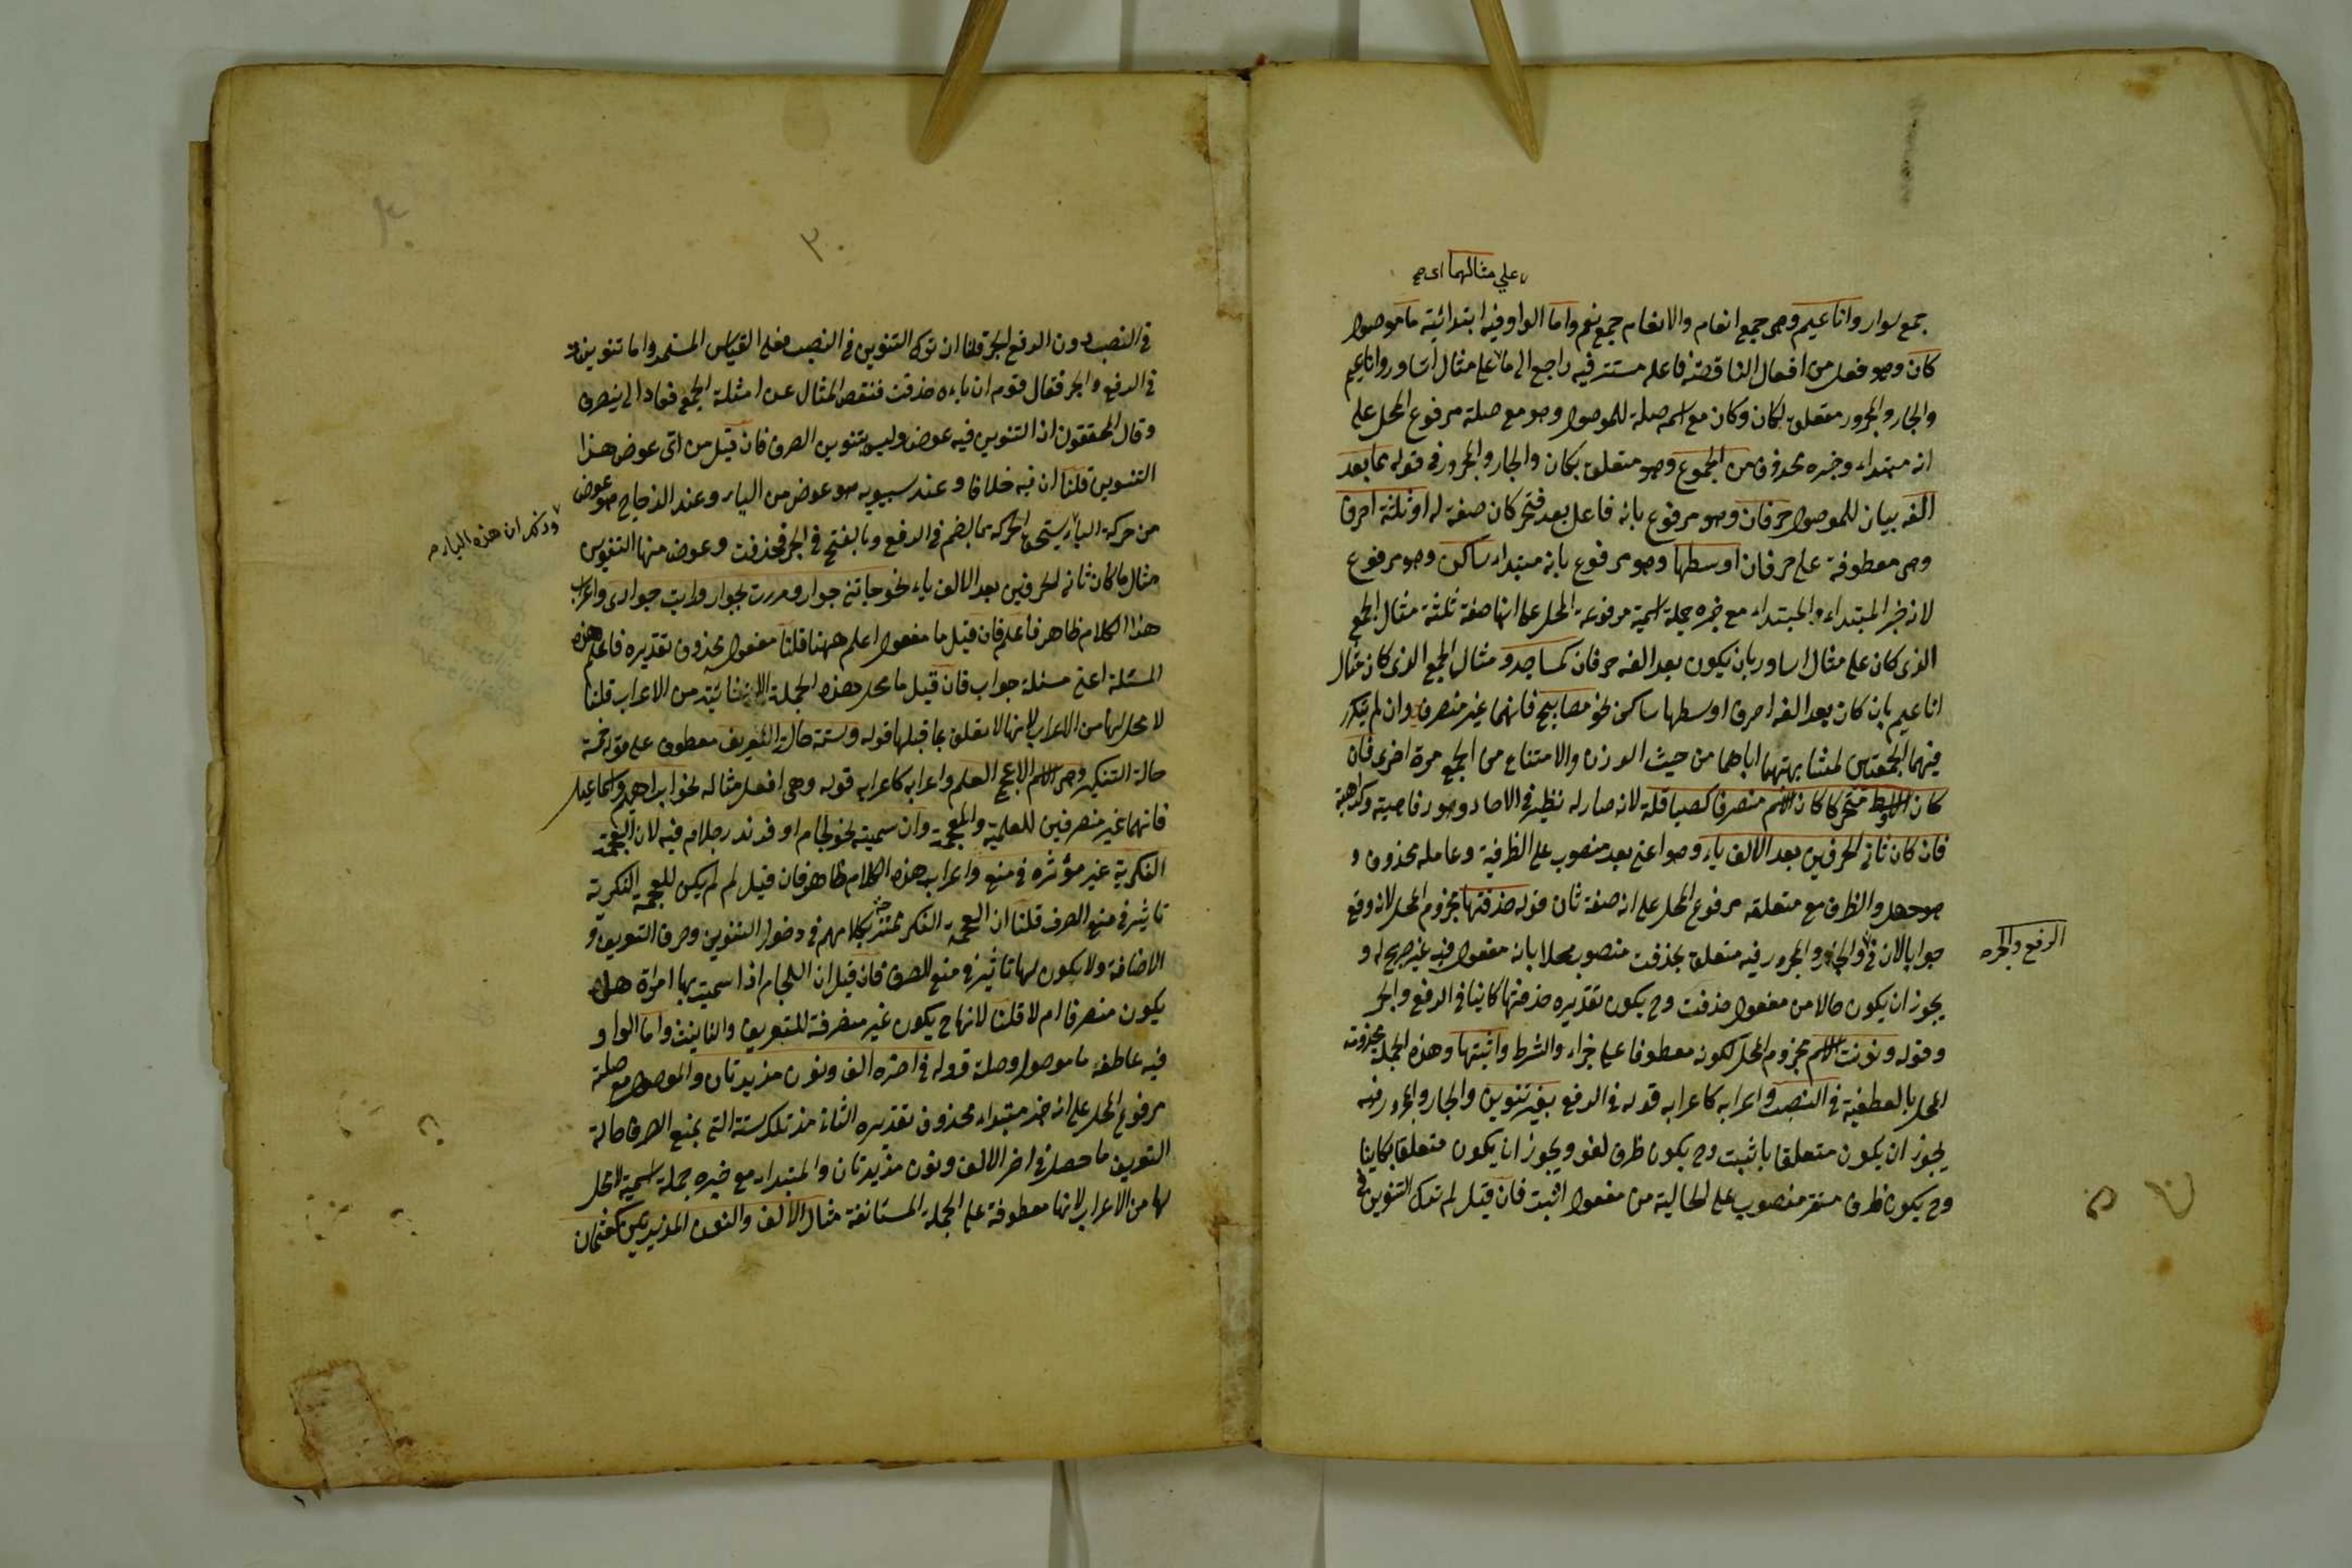 علي مثالهما اى صح
جمع سوار واناعيم وهى جمع انعام والانعام جمع نعم واما الواو فيه ابتدائية ما موصول
كان وهو فعل من افعال الناقصة فاعله مستتر فيه راجع الى ما على مثال اساور واناعيم
والجار والمجرور متعلق لكان وكان مع اسمه صلة للموصول وهو مع صلة مرفوع المحل على
انه مبتداء وخبره محذوف من الجموع وهو متعلق بكان والجار والمجرور فى قوله مما بعد
الفه بيان للموصول حرفان وهو مرفوع بانه فاعل بعد فتح كان صفة له او ثلثة احرف
وهى معطوفة على حرفان اوسطها وهو مرفوع بانه مبتداء ساكن وهو مرفوع
لانه خبر المبتداء والمبتداء مع خبره جملة اسمية مرفوعة المحل على انها صفة ثلثة مثال الجمع
الذى كان على مثال اساور بان يكون بعد الفه حرفان كمساجد ومثال الجمع الذى كان مثال
اناعيم بان كان بعد الفه احرف اوسطها ساكن نحو مصابيح فانهما غير منصرف وان لم يتكرر
فيهما الجمعتين لمشابهتهما اياهما من حيث الوزن والامتناع من الجمع مرة اخرى فان
كان الاوسط متحركا كان الاسم منصرفا كصياقلة لانه صار له نظير فى الاحاد وهو رفاهية وكراهية
فان كان ثانى الحرفين بعد الالف ياء وهو اعنى بعد منصوب على الظرفية وعامله محذوف و
هو حصل والظرف مع متعلقه مرفوع المحل على انه صفة ثان قوله حذفتها مجزوم المحل لانه وقع
جوابا لان فى والجار والمجرور فيه متعلق بحذفت منصوب محلا بانه مفعول فيه غير صريح له و
الرفع والجر
يجوز ان يكون حالا من مفعول حذفت وح يكون تقديره حذفتها كاينا فى الرفع والجر
وقوله ونونت الاسم مجزوم المحل لكونه معطوفا على جزاء والشرط واثبتها وهذه الجملة مجزومة
المحل بالعطفية فى النصب واعرابه كاعرابه قوله فى الرفع بغير تنوين والجار والمجرور فيه
يجوز ان يكون متعلقا باثبت وح يكون ظرف لغو ويجوز ان يكون متعلقا بكاينا
وح يكون ظرف مستقر منصوب على الحالية من مفعول اثبت فان قيل لم ترك التنوين فى
٣٠
فى النصب دون الرفع والجر قلنا ان ترك التنوين فى النصب فعلى القياس المستمر واما تنوينه
فى الرفع والجر فقال قوم ان ياءه حذفت فنقص المثال عن امثلة الجمع فعاد الى ينصرف
وقال المحققون ان التنوين فيه عوض وليس بتنوين الصرف فان قيل من اى عوض هذا
التنوين قلنا ان فيه خلافا وعند سيبويه هو عوض من الياء وعند الزجاج هو عوض
وذلك ان هذه الياء صح
من حركة الياء يستحق الحركة بما بضم فى الرفع وبالفتح فى الجر فحذفت وعوض منها التنوين
مثال ما كان ثانى الحرفين بعد الالف ياء نحو جاءتنى جوار ومررت بجوار ورايت جوارى واعراب
هذا الكلام ظاهر فاعلم فان قيل ما مفعول اعلم ههنا قلنا مفعوله محذوف تقديره فاعلم هذه
المسئلة اعنى مسئلة جواب فان قيل ما محل هذه الجملة الانشائية من الاعراب قلنا
لا محل لها من الاعراب لانها لا تعلق بما قبلها قوله وستة حالة التعريف معطوف على قوله خمسة
حالة التنكير وهى الاسم الاعجمى العلم واعرابه كاعرابه قوله وهى افعل مثاله نحو ابراهيم واسماعيل
فانهما غير منصرفين للعلمية والعجمة وان سميت بنحو لجام او فرند رجلا صرفه فيه لان العجمة
النكرية غير مؤثرة فى منع واعراب هذه الكلام ظاهر فان قيل لم لم يكن للعجمة النكرية
تاثير فى منع الصرف قلنا ان العجمة النكر تمتزج بكلامهم فى دخول التنوين وحرف التعريف و
الاضافة ولا يكون لها تاثير فى منع الصرف فان قيل ان اللجام اذا سميت بها امراة هل
يكون منصرفا ام لا قلنا لانها ح يكون غير منصرفة للتعريف والتانيث واما الواو
فيه عاطفة ما موصول وصلة قوله فى اخره الف ونون مزيدتان والموصول مع صلة
مرفوع المحل على انه خبر مبتداء محذوف تقديره الثانى من تلك ستة التى يمنع الصرف حالة
التعريف ما حصل فى اخر الالف ونون مزيدتان والمبتداء مع خبره جملة اسمية لا محل
لها من الاعراب لانها معطوفة على الجملة المستانفة مثال الالف والنون المزيدتين كعثمان